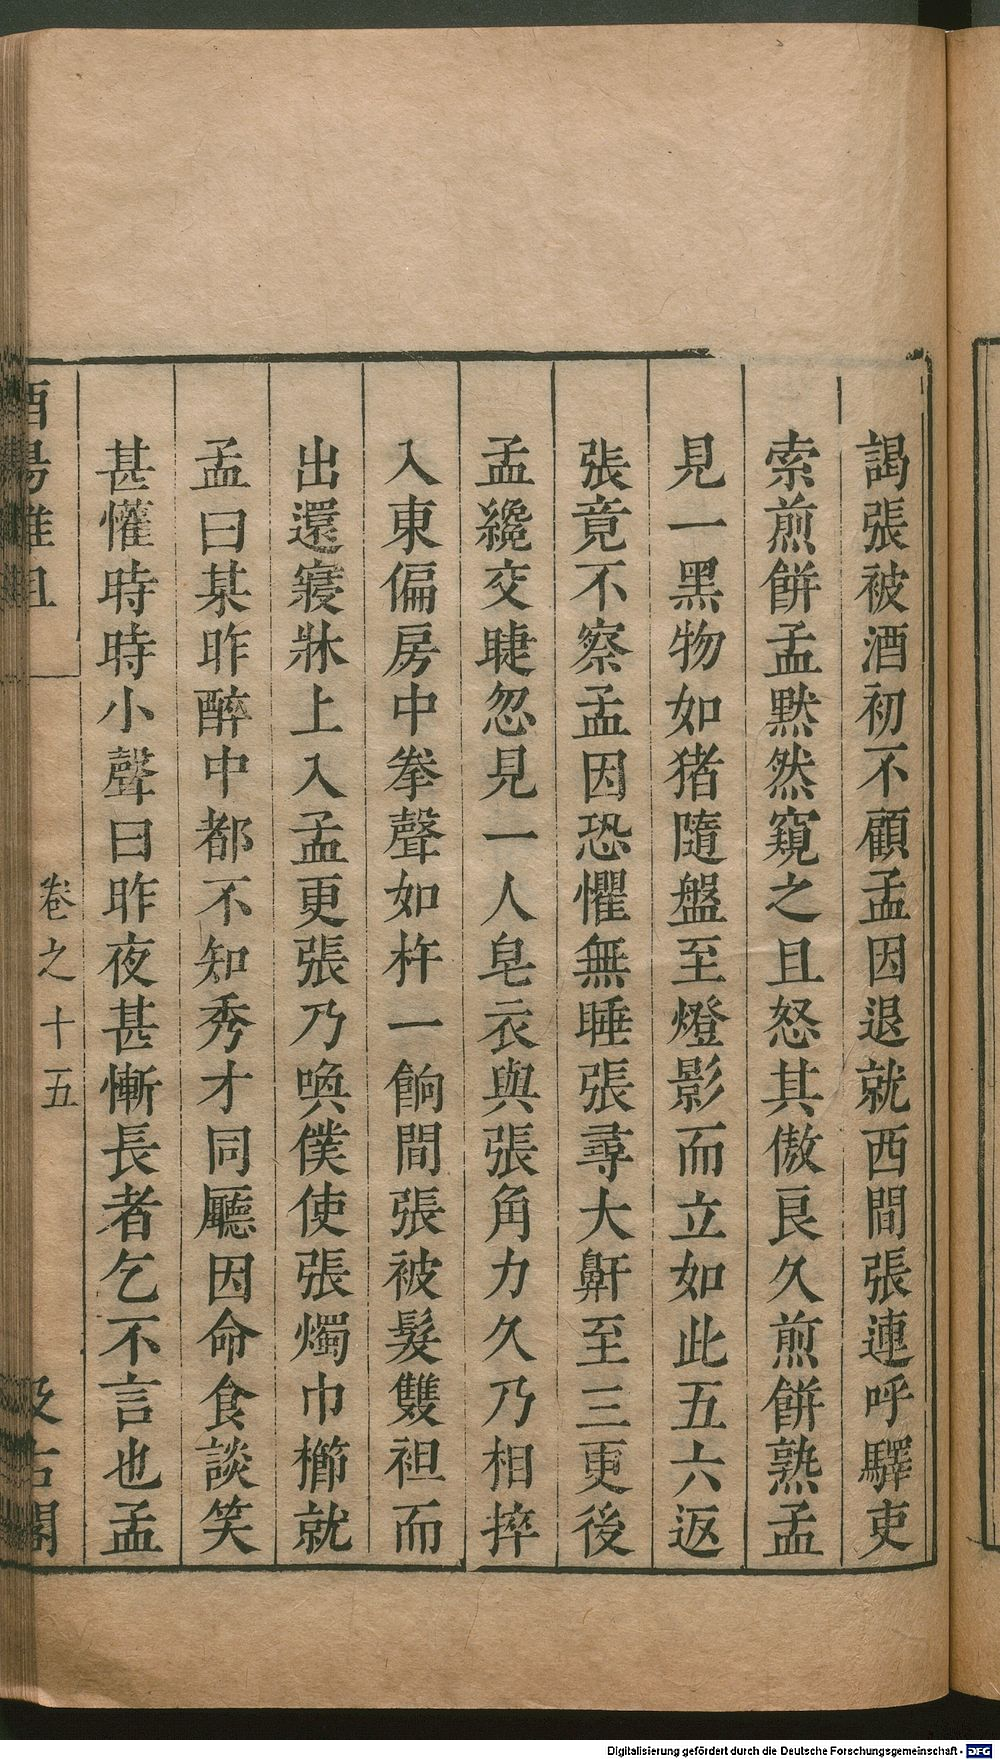 謁張被酒初不顧孟因退就西間張連呼驛吏
索煎餅孟黙然窺之且怒其傲良久煎餅熟孟
見一黑物如猪隨盤至燈影而立如此五六返
張竟不察孟因恐懼無睡張尋大鼾至三更後
孟纔交睫忽見一人皂衣與張角力久乃相捽
入東偏房中拳聲如杵一餉間張被髮雙袒而
出還寢牀上入孟更張乃喚僕使張燭巾櫛就
孟曰某昨醉中都不知秀才同廳因命食談笑
甚懽時時小聲曰昨夜甚慚長者乞不言也孟
酉陽雜俎
卷之十五
汲古閣
Digitalisierung gefördert durch die Deutsche Forschungsgemeinschaft - DFG